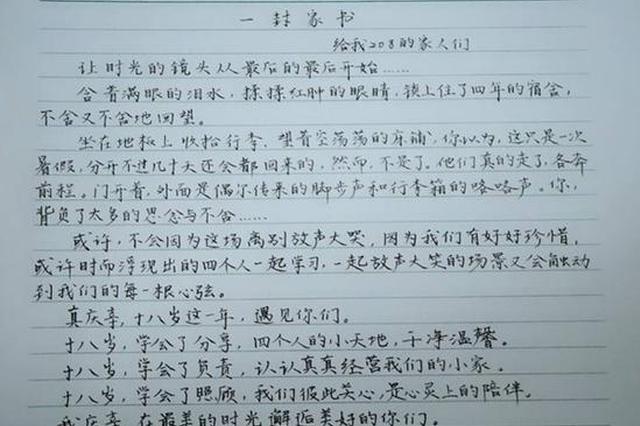 一封家书
给我208的家人们
让时光的镜头从最后的最后开始……
含着满眼的泪水，揉揉红肿的眼睛，锁上住了四年的宿舍，
不舍又不舍地回望。
坐在地板上收拾行李、望着空荡荡的床铺，你以为，这只是一次
暑假，分开不过几十天还会都回来的，然而，不是了。他们真的走了，各奔
前程。门开着，外面是偶尔传来的脚步声和行李箱的咯咯声。你，
背负了太多的思念与不舍……
或许，不会因为这场离别放声大哭，因为我们有好好珍惜，
或许时而浮现出的四个人一起学习，一起放声大笑的场景又会触动
到我们的每一根心弦。
真庆幸，十八岁这一年，遇见你们。
十八岁，学会了分享，四个人的小天地，干净温馨。
十八岁，学会了负责，认认真真经营我们的小家。
十八岁，学会了照顾，我们彼此关心，是心灵上的陪伴。
我庆幸，在最美的时光邂逅美好的你们。